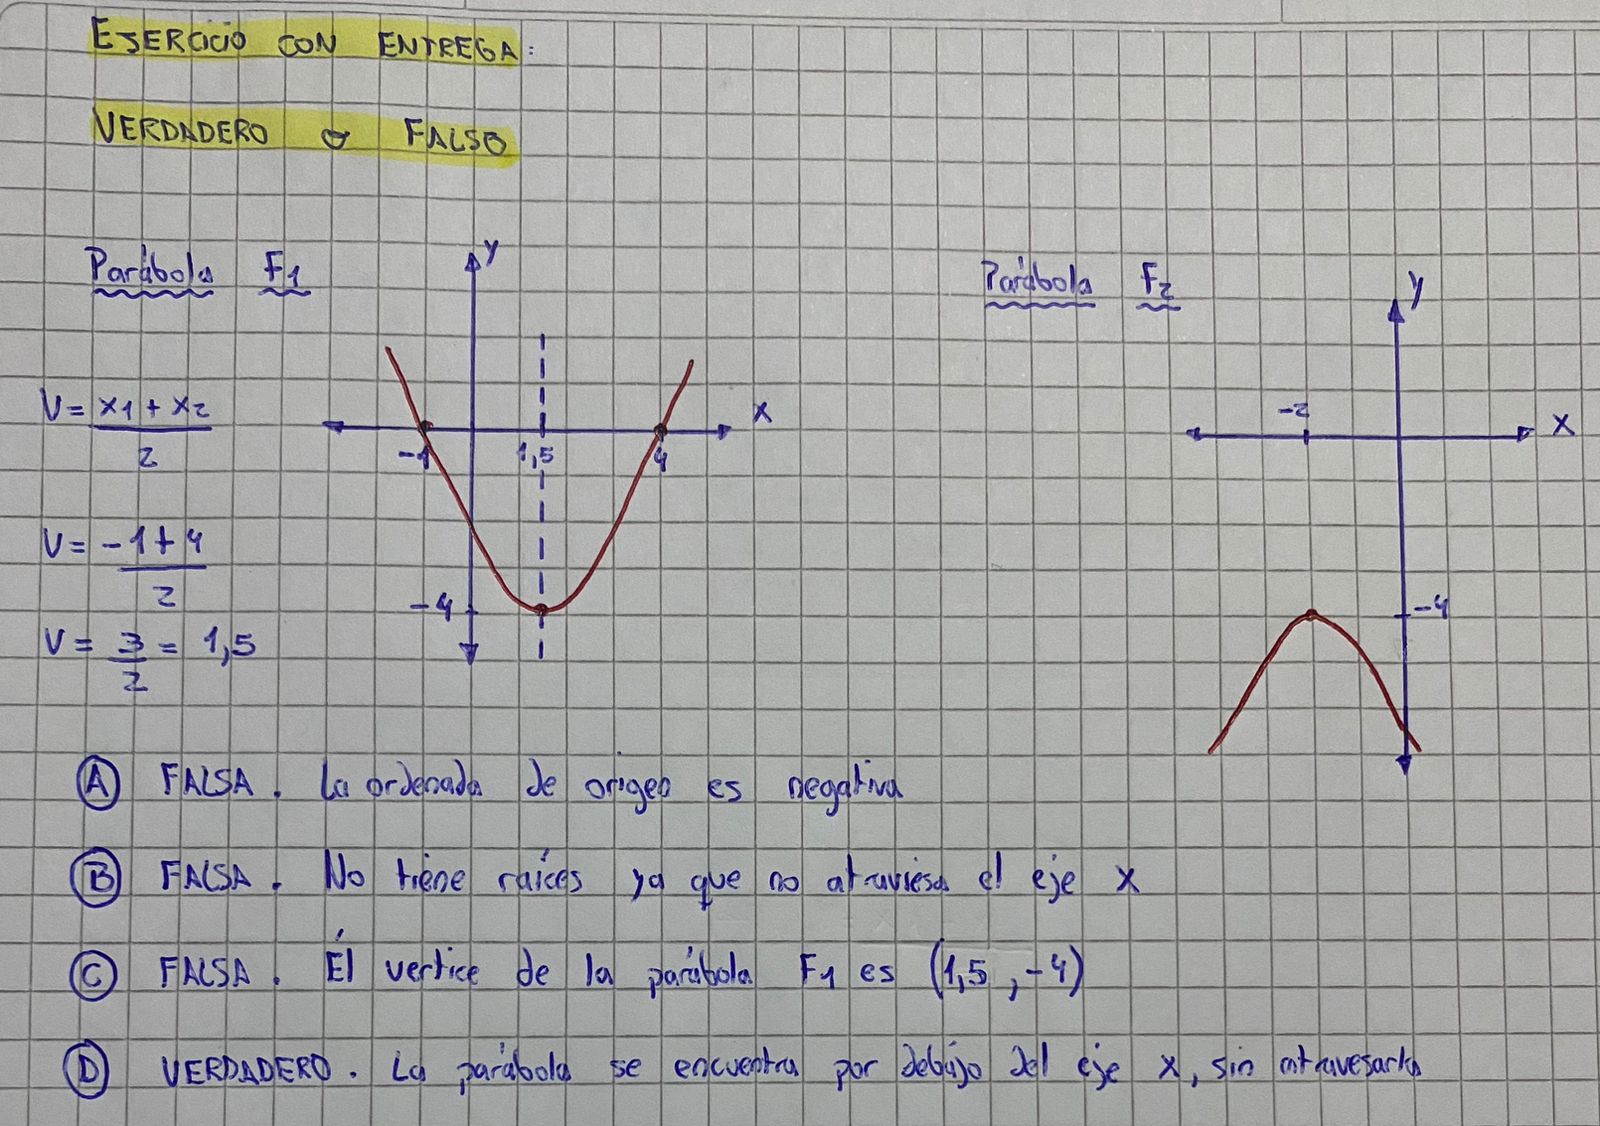 EJERCICIO CON ENTREGA:
VERDADERO O FALSO
Parábola F1
Y
X
-1
1,5
4
-4
V = x1 + x2
2
V = -1+4
2
V = 3 = 1,5
2
Parábola F2
y
-2
X
-4
A FALSA. La ordenada de origen es negativa
B FALSA. No tiene raíces ya que no atraviesa el eje x
C FALSA. Él vertice de la parábola F1 es (1,5 , -4)
D VERDADERO. La parábola se encuentra por debajo del eje x, sin atravesarla